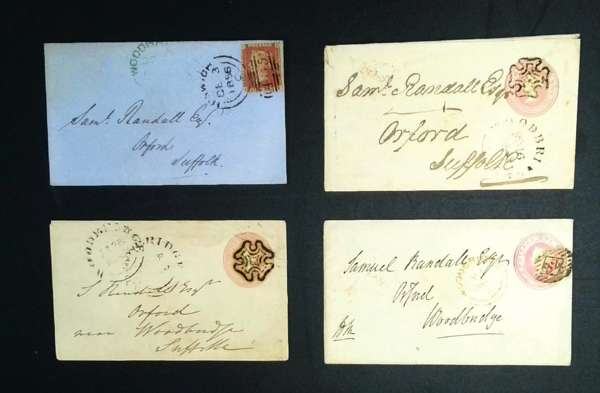 WOODBR
IPSWICH
DE 3
1856
Saml. Randall Esq.
Orford
Suffolk
Saml. Randall Esqr
Orford
Suffolk
WOODBRI
WOODBRIDGE
S Randall Esqr
Orford
near Woodbridge
Suffolk
Samuel Randall Esqr
Orford
Woodbridge